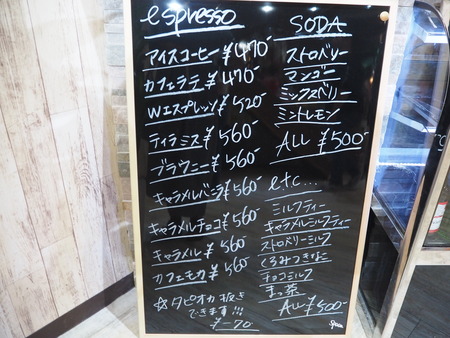 espresso
アイスコーヒー ¥470-
カフェラテ ¥470-
Wエスプレッソ ¥520-
ティラミス ¥560-
ブラウニー ¥560-
キャラメルバニラ ¥560-
キャラメルチョコ ¥560-
キャラメル ¥560
カフェモカ ¥560-
☆タピオカ抜き
できます!!!
¥-70-
SODA
ストロベリー
マンゴー
ミックスベリー
ミントレモン
ALL ¥500-
etc...
ミルクティー
キャラメルミルクティー
ストロベリーミルク
くるみきなこ
チョコミルク
まっ茶
ALL ¥500-